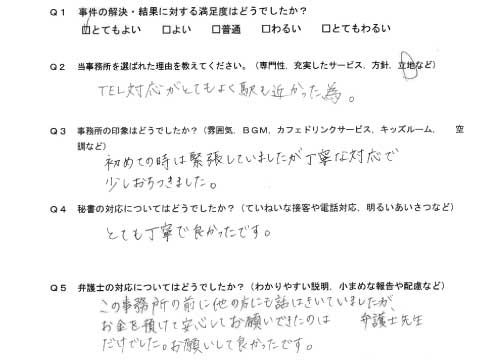 Q1 事件の解決・結果に対する満足度はどうでしたか？
☑とてもよい □よい □普通 □わるい □とてもわるい
Q2 当事務所を選ばれた理由を教えてください。（専門性，充実したサービス，方針，立地など）
TEL対応がとてもよく駅も近かった為。
Q3 事務所の印象はどうでしたか？（雰囲気，ＢＧＭ，カフェドリンクサービス，キッズルーム， 空
調など）
初めての時は緊張していましたが丁寧な対応で
少しおちつきました。
Q4 秘書の対応についてはどうでしたか？（ていねいな接客や電話対応、明るいあいさつなど）
とても丁寧で良かったです。
Q5 弁護士の対応についてはどうでしたか？（わかりやすい説明，小まめな報告や配慮など）
この事務所の前に他の方にも話はきいていましたが
お金を預けて安心してお願いできたのは 弁護士先生
だけでした。お願いして良かったです。